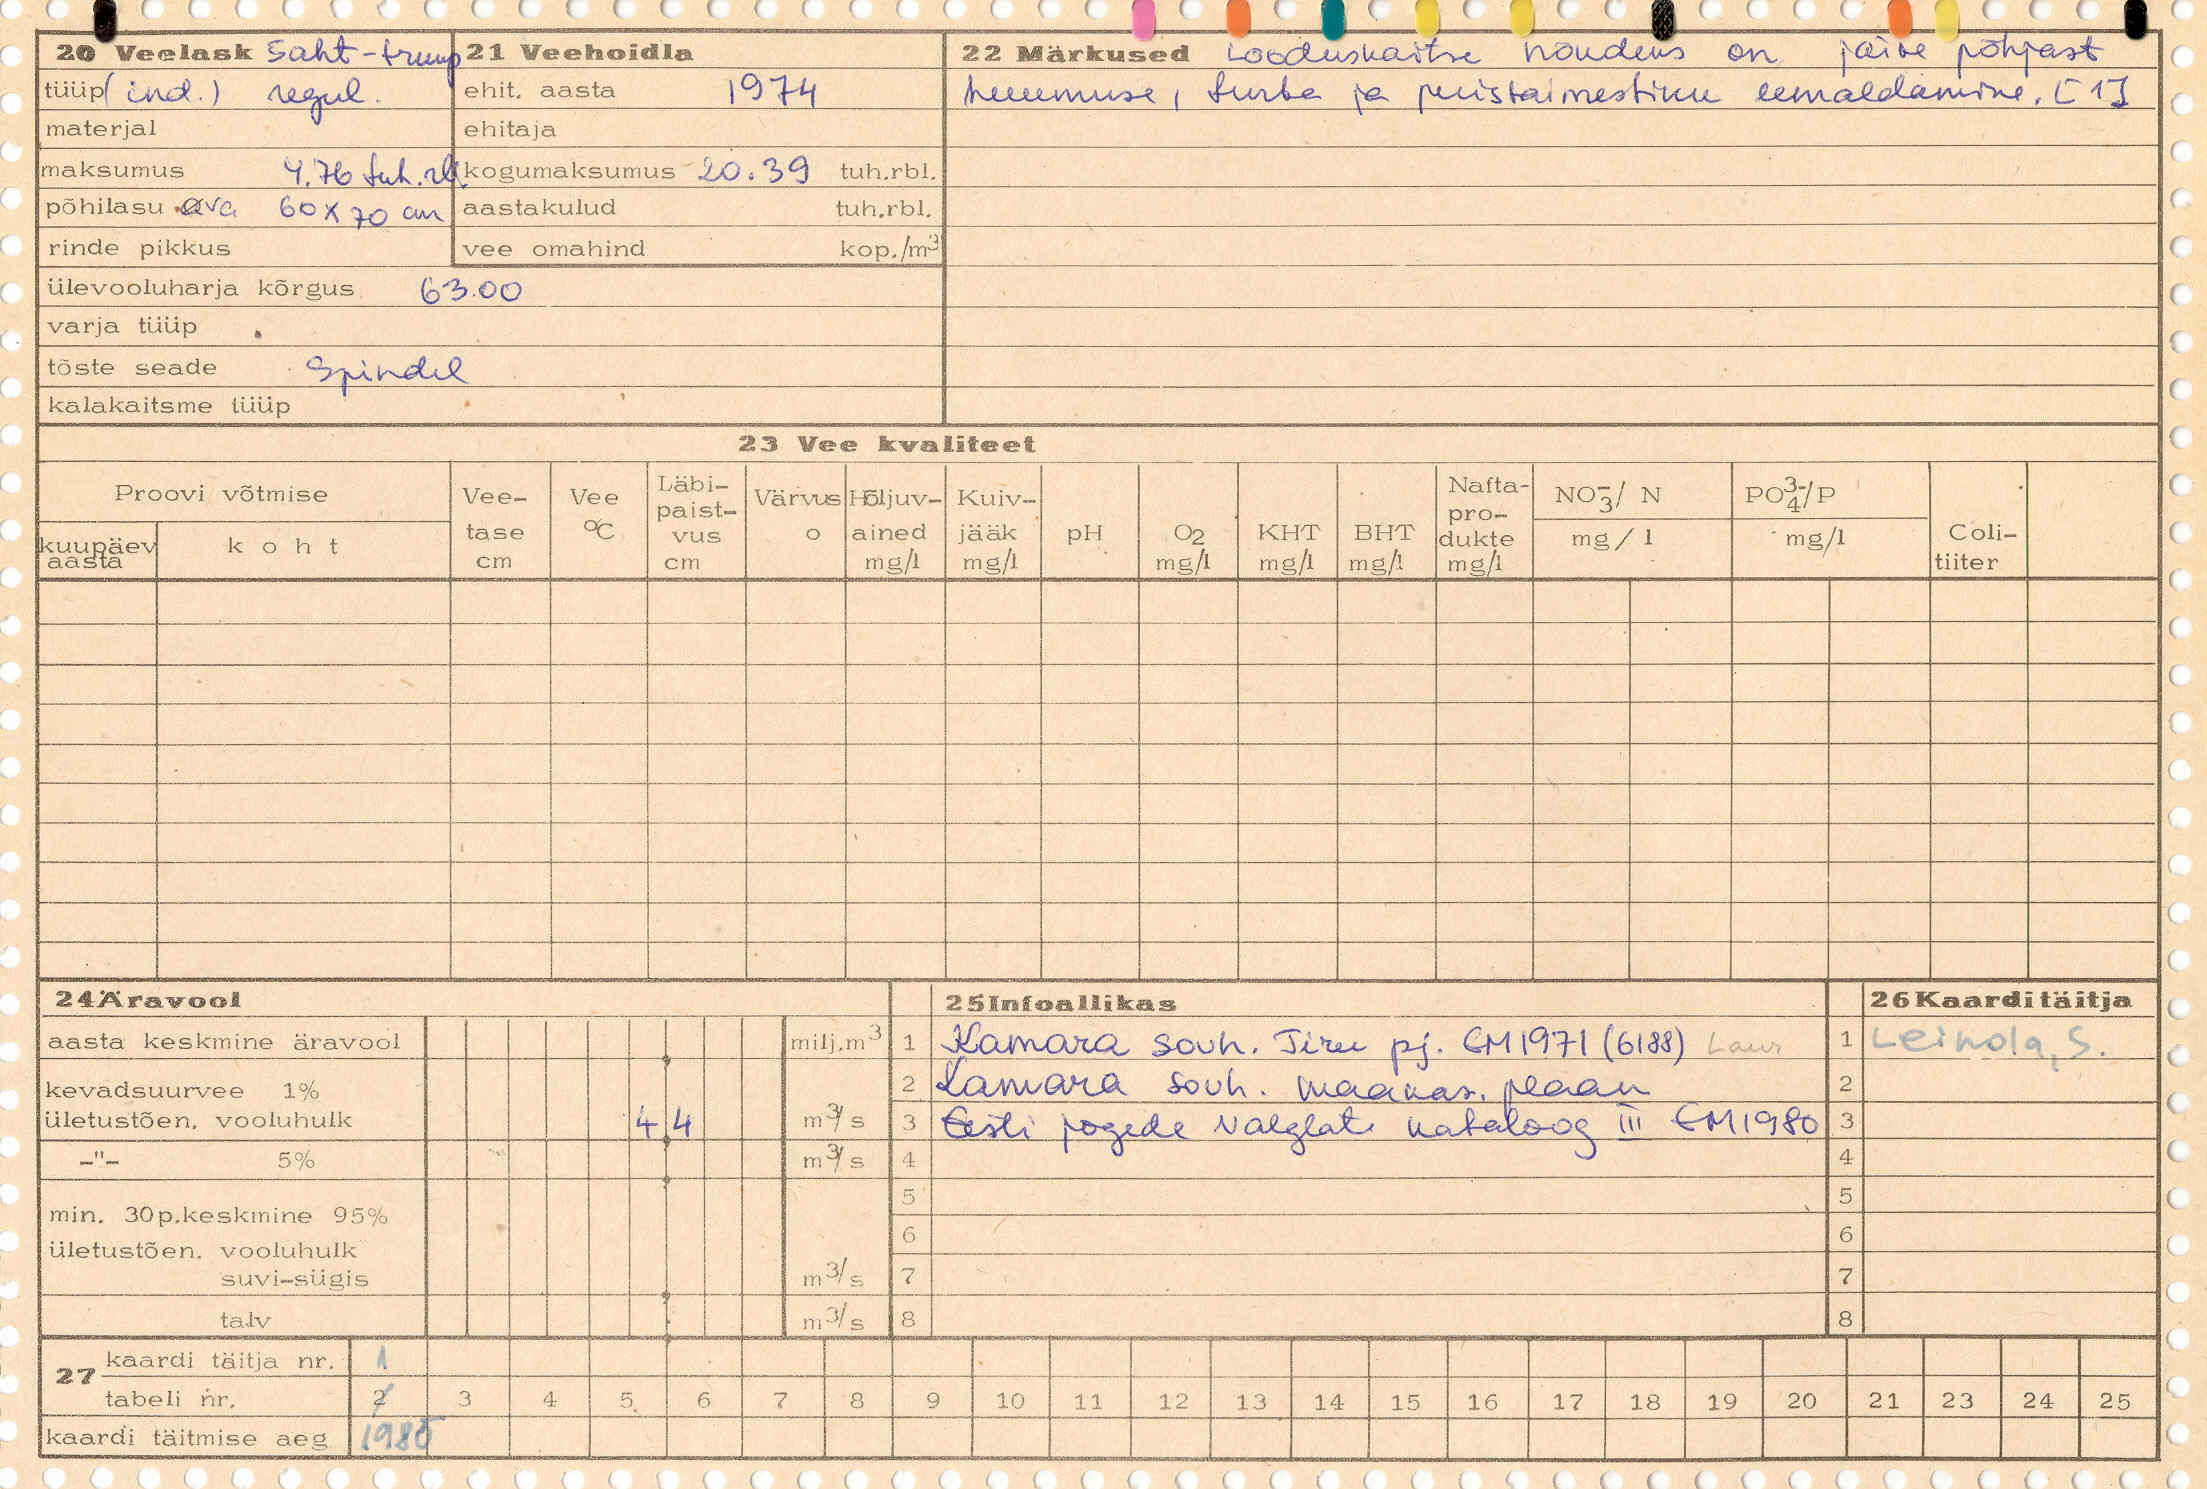 20 Veelask Saht-truup
tüüp (ind.) regul.
materjal
maksumus 4.76 tuh.rbl
põhilasu ava 60x70 cm
rinde pikkus
ülevooluharja kõrgus 63.00
varja tüüp
tõste seade Spindel
kalakaitsme tüüp
21 Veehoidla
ehit. aasta 1974
ehitaja
kogumaksumus 20.39 tuh.rbl.
aastakulud tuh.rbl.
vee omahind kop./m3
22 Märkused Looduskaitse nõudeks on järve põhjast
huumuse, turba ja puistaimestiku eemaldamine. [1]
23 Vee kvaliteet
Proovi võtmise
kuupäev aasta
koht
Vee-tase cm
Vee °C
Läbi-paist-vus cm
Värvus o
Hõljuv-ained mg/l
Kuiv-jääk mg/l
pH
O2 mg/l
KHT mg/l
BHT mg/l
Nafta-pro-dukte mg/l
NO3-/ N mg/l
PO4 3-/P mg/l
Coli-tiiter
24 Äravool
aasta keskmine äravool milj.m3
kevadsuurvee 1%
ületustõen. vooluhulk 4.4 m3/s
-"- 5% m3/s
min. 30p.keskmine 95%
ületustõen. vooluhulk
suvi-sügis m3/s
talv m3/s
25 Infoallikas
1 Kamara sovh. Tiru pj. EM1971 (6188) Laur
2 Kamara sovh. maakas. plaan
3 Eesti jõgede valglate kataloog III EM1980
4
5
6
7
8
26 Kaardi täitja
1 Leinola, S.
2
3
4
5
6
7
8
27 kaardi täitja nr. 1
tabeli nr. 2 3 4 5 6 7 8 9 10 11 12 13 14 15 16 17 18 19 20 21 23 24 25
kaardi täitmise aeg 1985